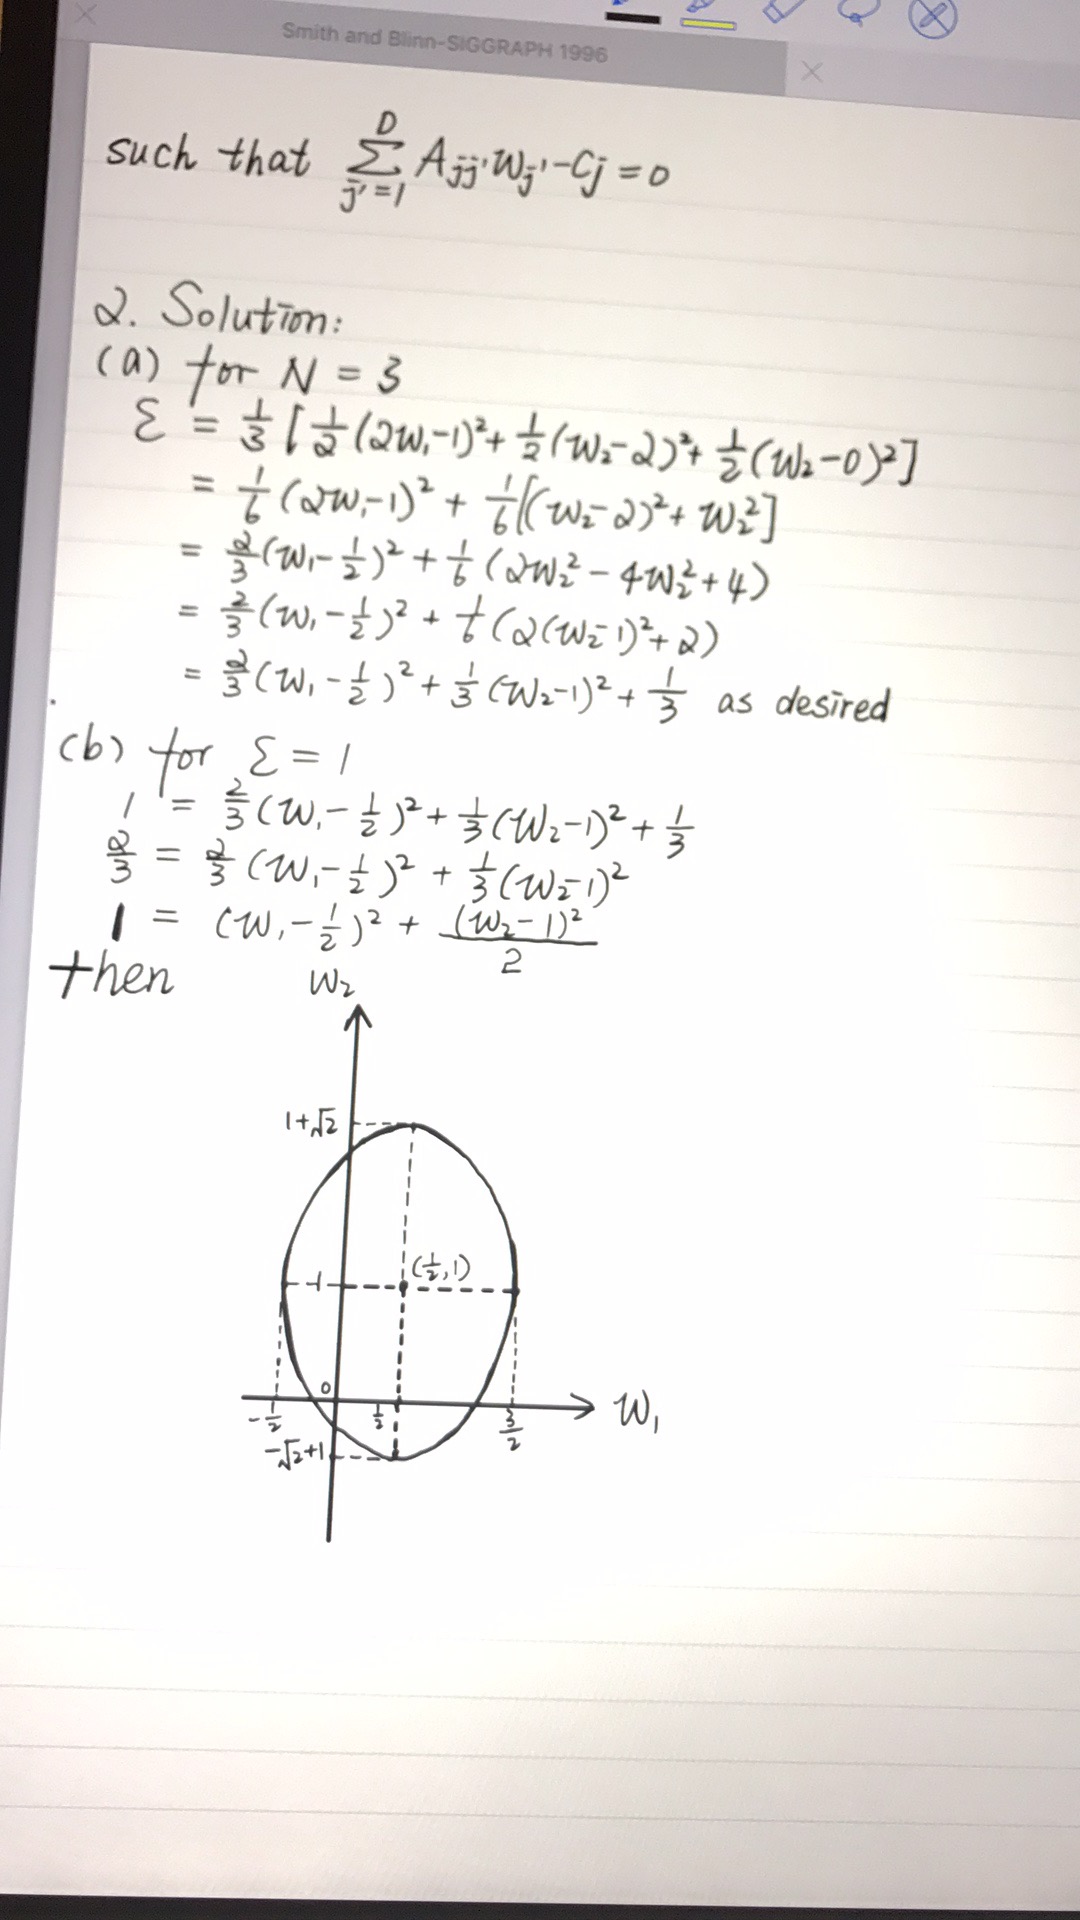 Smith and Blinn-SIGGRAPH 1996
such that \sum_{j'=1}^{D} A_{jj'} w_{j'} - C_j = 0
2. Solution:
(a) for N = 3
ε = 1/3 [ 1/2 (2w₁-1)² + 1/2 (w₂-2)² + 1/2 (w₂-0)² ]
= 1/6 (2w₁-1)² + 1/6 [(w₂-2)² + w₂²]
= 2/3 (w₁ - 1/2)² + 1/6 (2w₂² - 4w₂² + 4)
= 2/3 (w₁ - 1/2)² + 1/6 (2(w₂-1)² + 2)
= 2/3 (w₁ - 1/2)² + 1/3 (w₂-1)² + 1/3 as desired
(b) for ε = 1
1 = 2/3 (w₁ - 1/2)² + 1/3 (w₂-1)² + 1/3
2/3 = 2/3 (w₁ - 1/2)² + 1/3 (w₂-1)²
1 = (w₁ - 1/2)² + (w₂-1)²/2
then
w₂
1+√2
(1/2, 1)
1
0
-1/2 1/2 3/2 w₁
-√2+1